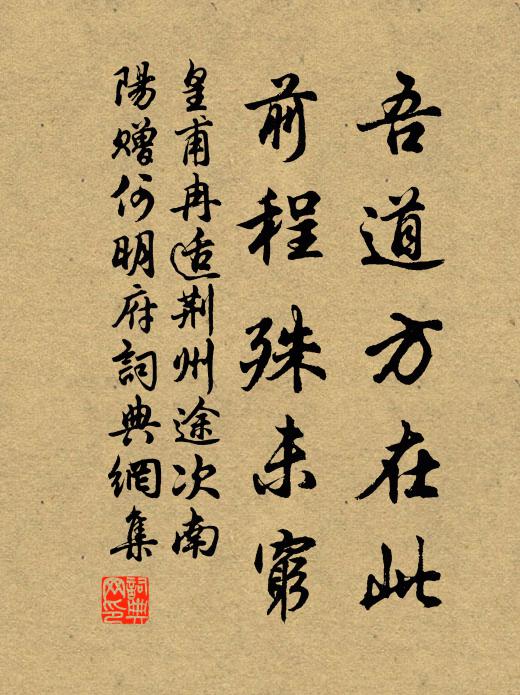 吾道方在此
前程殊未窮
皇甫冉適荆州途次南
陽贈何明府詞典網集
詞典
网印